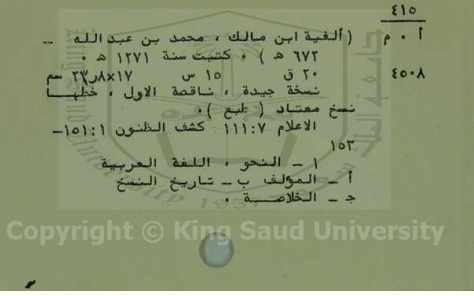 ٤١٥
أ ٠ م ( ألفية ابن مالك ، محمد بن عبد الله ــ
٦٧٢ ه ) ٠ كتبت سنة ١٢٧١ ه ٠
٤٥٠٨ ٢٠ ق ١٥ س ١٧×٢٣٫٨ سم
نسخة جيدة ، ناقصة الاول ، خطها
نسخ معتاد ( طبع ) ٠
الاعلام ١١١:٧ كشف الظنون ١٥١:١-
١٥٣
١ - النحو ، اللغة العربية
أ - المؤلف ب - تاريخ النسخ
ج - الخلاصة ٠
Copyright © King Saud University